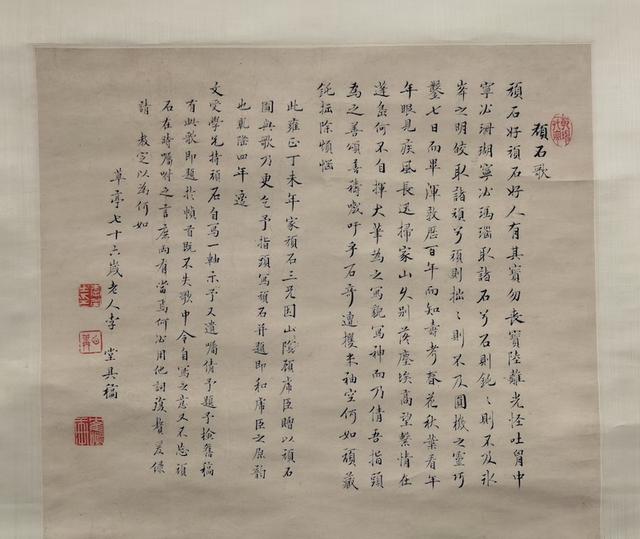 頑石歌
頑石好頑石好人有其寶勿喪寶陸離光怪吐胷中
寧必珊瑚寧必瑪瑙取諸石兮石則鈍鈍則不及氷
岺之明皎取諸頑兮頑則拙拙則不及圓機之靈巧
鑿七日而畢渾敦歷百年而知壽考春花秋葉看年
年眼見疾風長迅掃家山久别落塵埃高望繫情在
蓬島何不自揮大筆為之寫貌寫神而乃倩吾指頭
為之善頌善禱嘻吁乎石奇遭攫米袖空何如頑藏
鈍拙除煩惱
此雍正丁未年家頑石三兄因山陰頑席臣時以頑石
圖與歌乃更乞予指頭寫頑石并題即和席臣之原韵
也乾隆四年
文受學先持頑石自寫一軸示予又遺囑倩予題予檢舊稿
有此歌即題於幀首既不失歌中令自寫之意又不忘頑
石在時囑咐之言庶兩有當焉何必用他詞後賢爰傺
請 教定以為何如
草亭七十六歲老人李 堂具稿